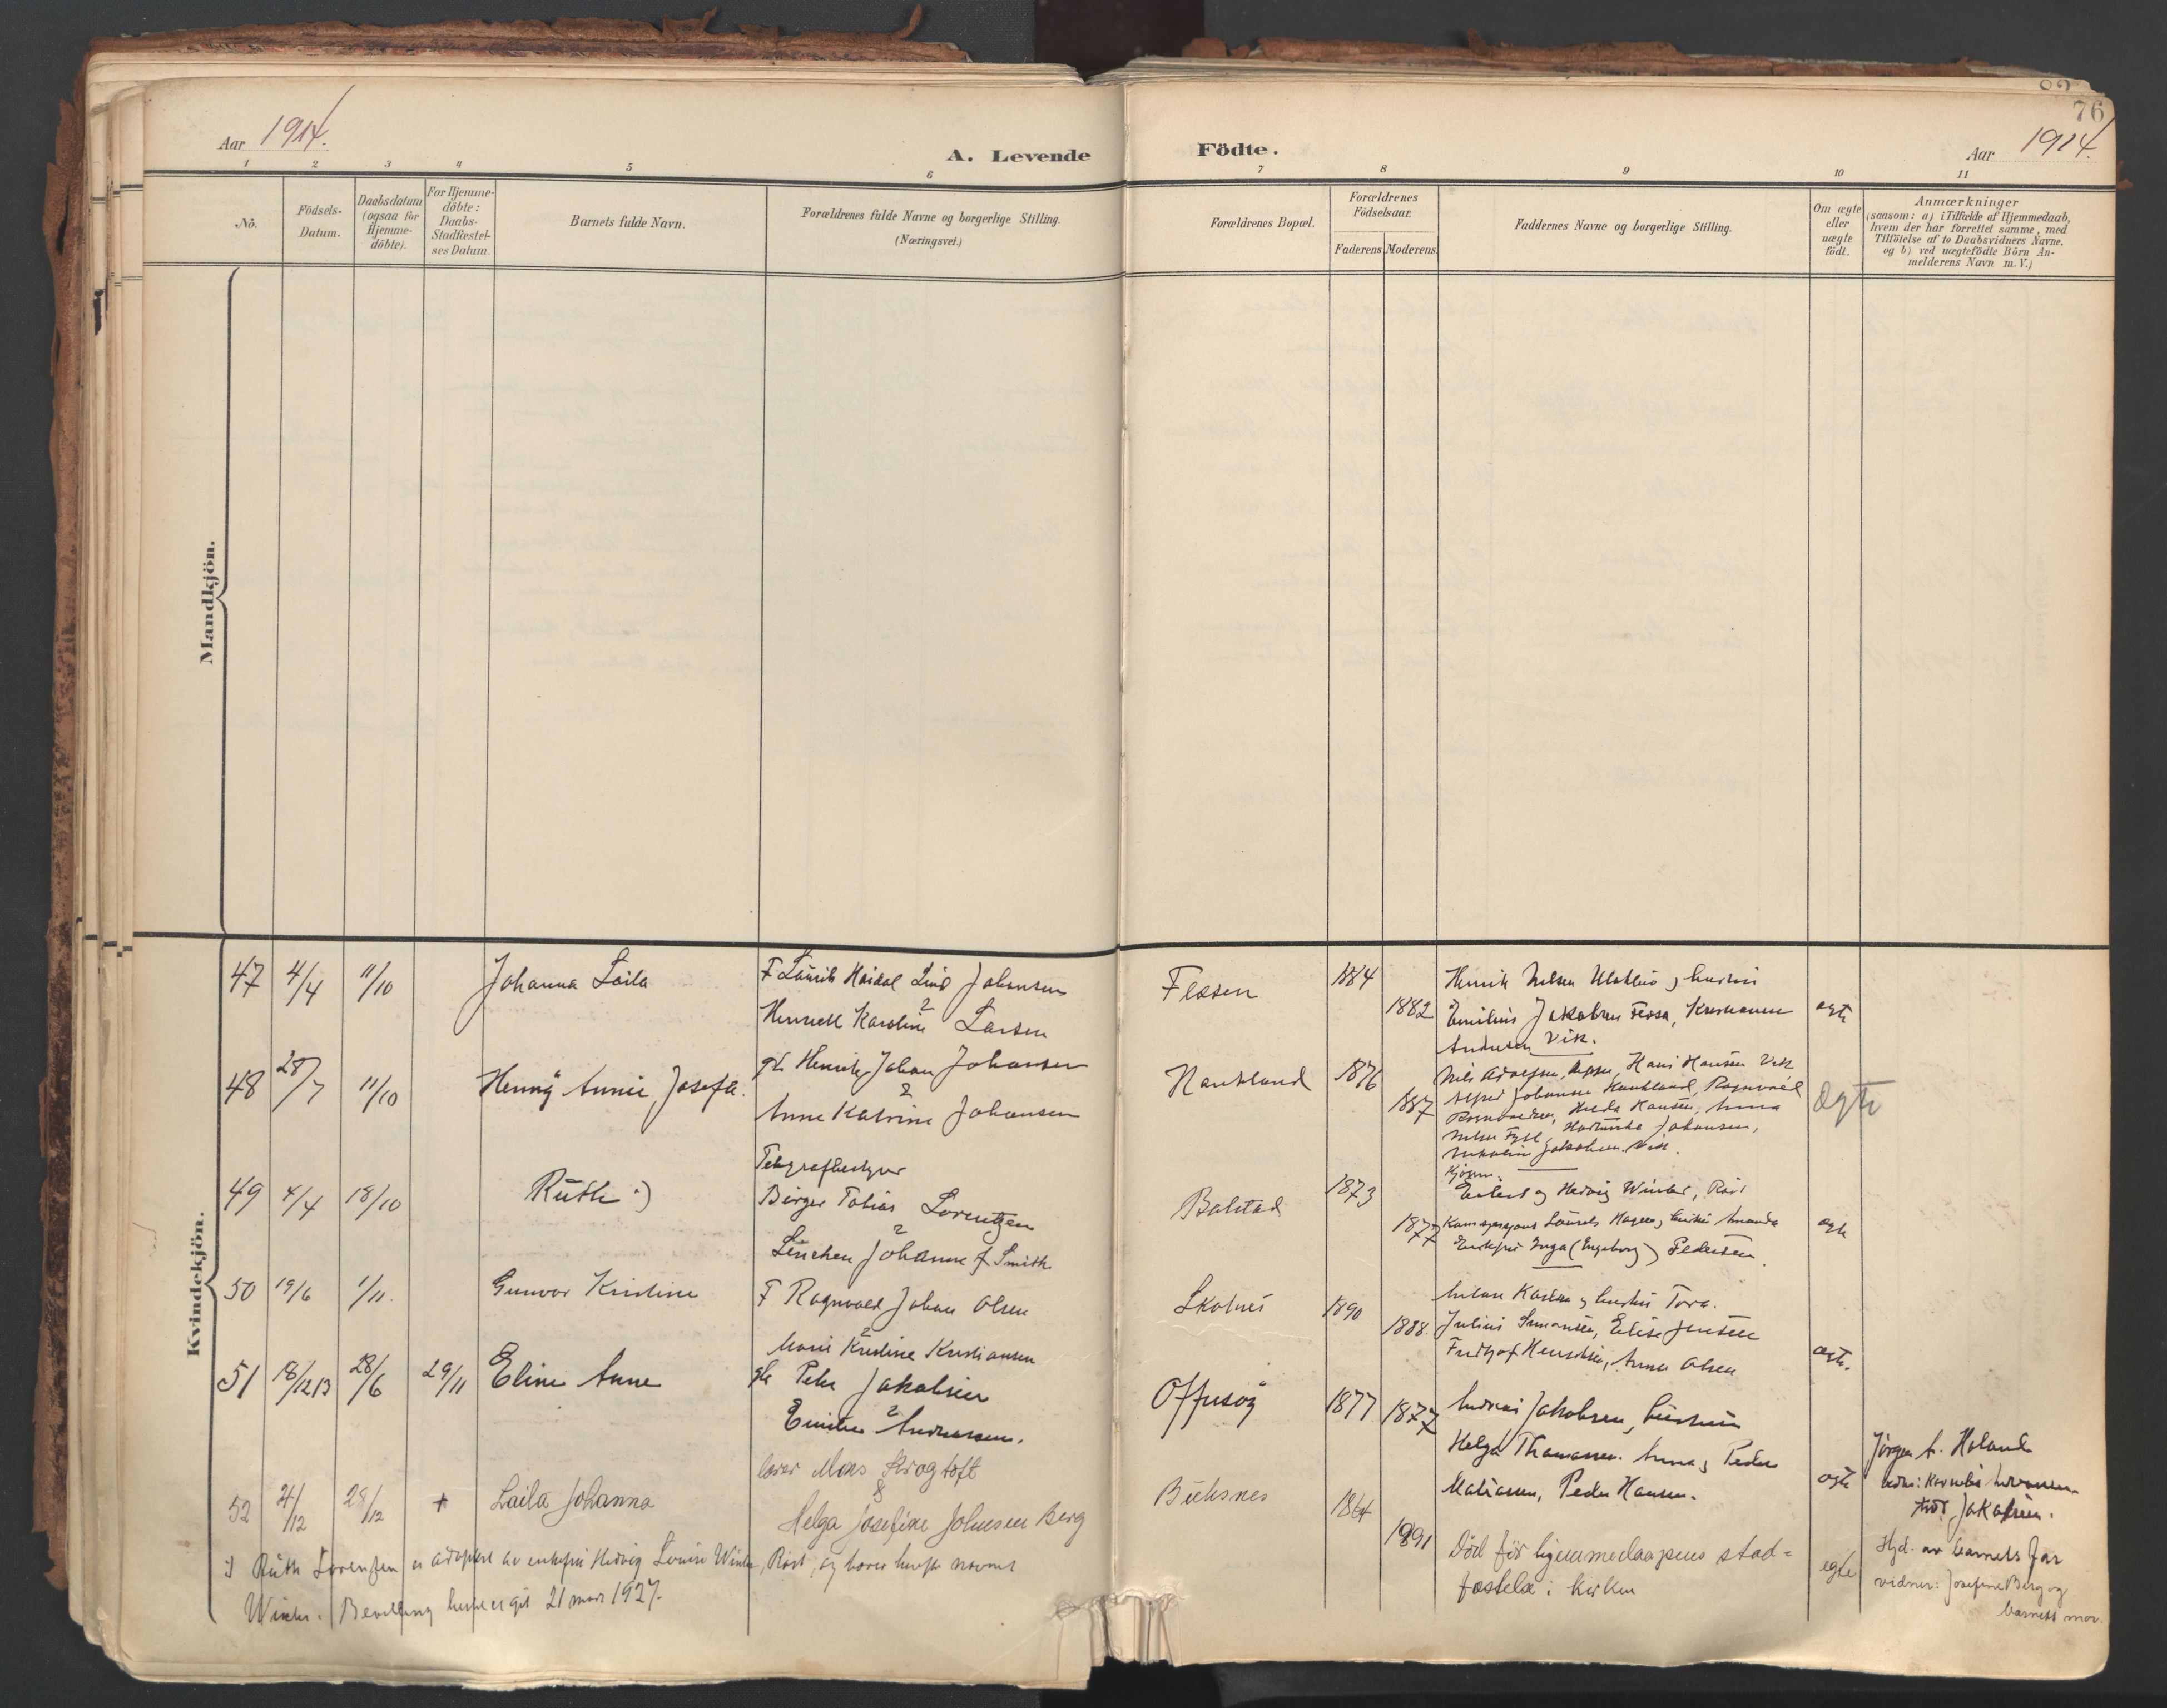 Aar 1914.
A. Levende
Födte.
76
Aar 1914.
1 2 3 4 5 6 7 8 9 10 11
No.
Födsels-
Datum.
Daabsdatum
(ogsaa for
Hjemme-
döbte).
For Hjemme-
döbte:
Daabs-
Stadfæstel-
ses Datum.
Barnets fulde Navn.
Forældrenes fulde Navne og borgerlige Stilling.
(Næringsvei.)
Forældrenes Bopæl.
Forældrenes
Födselsaar.
Faderens Moderens
Faddernes Navne og borgerlige Stilling.
Om ægte
eller
uægte
födt.
Anmærkninger
(saasom: a) i Tilfælde af Hjemmedaab,
hvem der har forrettet samme, med
Tilföielse af to Daabsvidners Navne,
og b) ved uægtefödte Börn An-
melderens Navn m. V.)
Mandkjön.
Kvindekjön.
47 4/4 11/10 Johanna Laila
F Laurits Haidal Lind Johansen
Karoline Larsen
1884
1882
Henrik Nilsen
Jakobsen Kristianen
Andersen Vik.
ægte
48 28/7 11/10 Henny Annie, Josefa.
Henrik Johan Johansen
Anna Katrine Johansen
Haukland 1876
1887
Nils Adolfsen, Hans Hansen Vik
Alfred Johansen Haukland, Ragnvald
Hilda Hansen, Anna
Johansen,
Jakobsen Vik.
ægte
49 4/4 18/10 Ruth :)
Telegrafbestyrer
Birger Tobias Lorentzen
Johanne f Smith
Balstad 1873
1877
og Hedvig Winther, Röst
Laurits Hagen, hustru Amanda
Enkefru Inga (Ingeborg) Pedersen
ægte
50 19/6 1/11. Gunvor Kristine
F Ragnvald Johan Olsen
Marie Kristine Kristiansen
Skotnes 1890
1888.
Karlsen og hustru Tora.
Julius Simonsen, Elise Jensen
Fridtjof Henriksen, Anna Olsen
ægte.
51 18/12 13 28/6 29/11 Eline Anne
Peder Jakobsen
Emilie Andreassen.
Offersöy 1877 1877
Andreas Jakobsen, hustru
Helga Thomassen. Anna, Peder
Matiassen, Peder Hansen.
ægte
Jörgen A. Holand
Jakobsen.
52 4/12 28/12 + Laila Johanna
lærer Mons Krogtoft
&
Helga Josefine Johnsen Berg
Buksnes 1864
1891
Död för hjemmedaapens stad-
fæstelse i kirken
egte
Hjd. av barnets far
vidner: Josefine Berg og
barnets mor.
:) Ruth Lorentzen er adoptert av enkefru Hedvig Louise Winther, Röst, og bærer hendes navn
Winther. Bevilling herpaa er git 21 mars 1927.